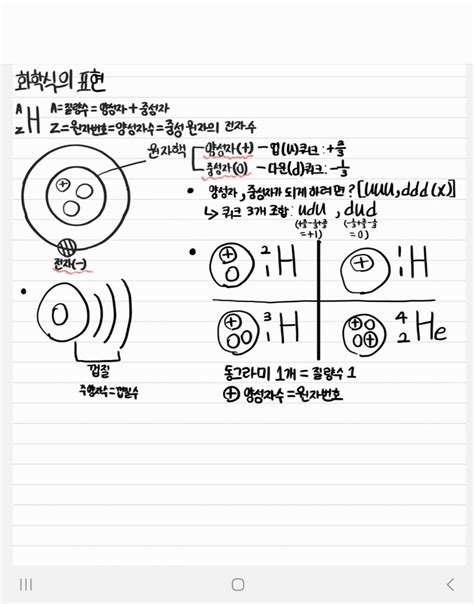 화학식의 표현
A
Z H A=질량수=양성자+중성자
Z=원자번호=양성자수=중성 원자의 전자수
원자핵
양성자(+) - 업(u)쿼크 : +2/3
중성자(0) - 다운(d)쿼크 : -1/3
• 양성자, 중성자가 되게 하려면? [uuu, ddd (x)]
↳ 쿼크 3개 조합 : udu , dud
(+2/3-1/3+2/3 =+1) (-1/3+2/3-1/3 =0)
전자(-)
2
1 H
1
1 H
3
1 H
4
2 He
껍질
주양자수=껍질수
동그라미 1개 = 질량수 1
⊕ 양성자수=원자번호